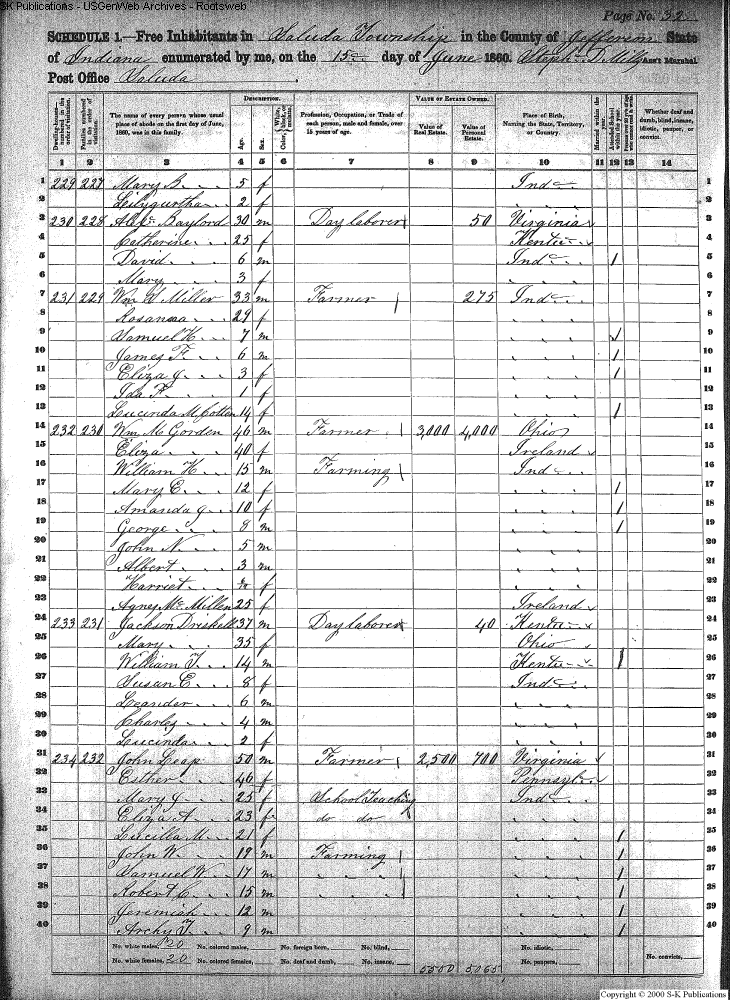 SK Publications - USGenWeb Archives - Rootsweb
Page No. 32
SCHEDULE 1.—Free Inhabitants in Saluda Township in the County of Jefferson State
of Indiana enumerated by me, on the 15 day of June 1860. Steph. D. Ass't Marshal
Post Office Saluda
DESCRIPTION. VALUE OF ESTATE OWNED.
Dwelling-houses— numbered in the order of visitation. Families numbered in the order of visitation. The name of every person whose usual place of abode on the first day of June, 1860, was in this family. Age. Sex. Color, White, black, or mulatto. Profession, Occupation, or Trade of each person, male and female, over 15 years of age. Value of Real Estate. Value of Personal Estate. Place of Birth, Naming the State, Territory, or Country. Married within the year. Attended School within the year. Whether deaf and dumb, blind, insane, idiotic, pauper, or convict.
1 2 3 4 5 6 7 8 9 10 11 12 13 14
1 229 227 Mary B. 5 f Ind 1
2 2 f " 2
3 230 228 Baylord 30 m Day laborer 50 Virginia 3
4 Catherine 25 f Kentu 4
5 David 6 m Ind 1 5
6 Mary 3 f " 6
7 231 229 Wm Miller 33 m Farmer 275 Ind 7
8 Rosanna 29 f " 8
9 Samuel H. 7 m " 1 9
10 James F. 6 m " 1 10
11 Eliza J. 3 f " 1 11
12 Ida F. 1 f " 12
13 Lucinda M. Cotten 14 f " 1 13
14 232 230 Wm M Gorden 46 m Farmer 3,000 4,000 Ohio 14
15 Eliza 40 f Ireland 15
16 William H. 15 m Farming Ind 16
17 Mary E. 12 f " 1 17
18 Amanda J. 10 f " 1 18
19 George 8 m " 1 19
20 John N. 5 m " 20
21 Albert 3 m " 21
22 Harriet f " 22
23 Agnes McMillen 25 f Ireland 23
24 233 231 Jackson Driskell 37 m Day laborer 40 Kentu 24
25 Mary 35 f Ohio 25
26 William T. 14 m Kentu 1 26
27 Susan E. 8 f Ind 27
28 Leander 6 m " 28
29 Charles 4 m " 29
30 Lucinda 2 f " 30
31 234 232 John Leap 50 m Farmer 2,500 700 Virginia 31
32 Esther 46 f Pennsyl 32
33 Mary J. 25 f School Teaching Ind 33
34 Eliza A. 23 f do do " 34
35 Lucilla M. 21 f " 1 35
36 John W. 19 m Farming " 1 36
37 Samuel W. 17 m " " 1 37
38 Robert C. 15 m " " 1 38
39 Jeremiah 12 m " 1 39
40 Archy T. 9 m " 1 40
No. white males, 20 No. colored males, No. foreign born, No. blind, No. idiotic,
No. white females, 20 No. colored females, No. deaf and dumb, No. insane, 5500 5065 No. paupers, No. convicts,
Copyright © 2000 S-K Publications